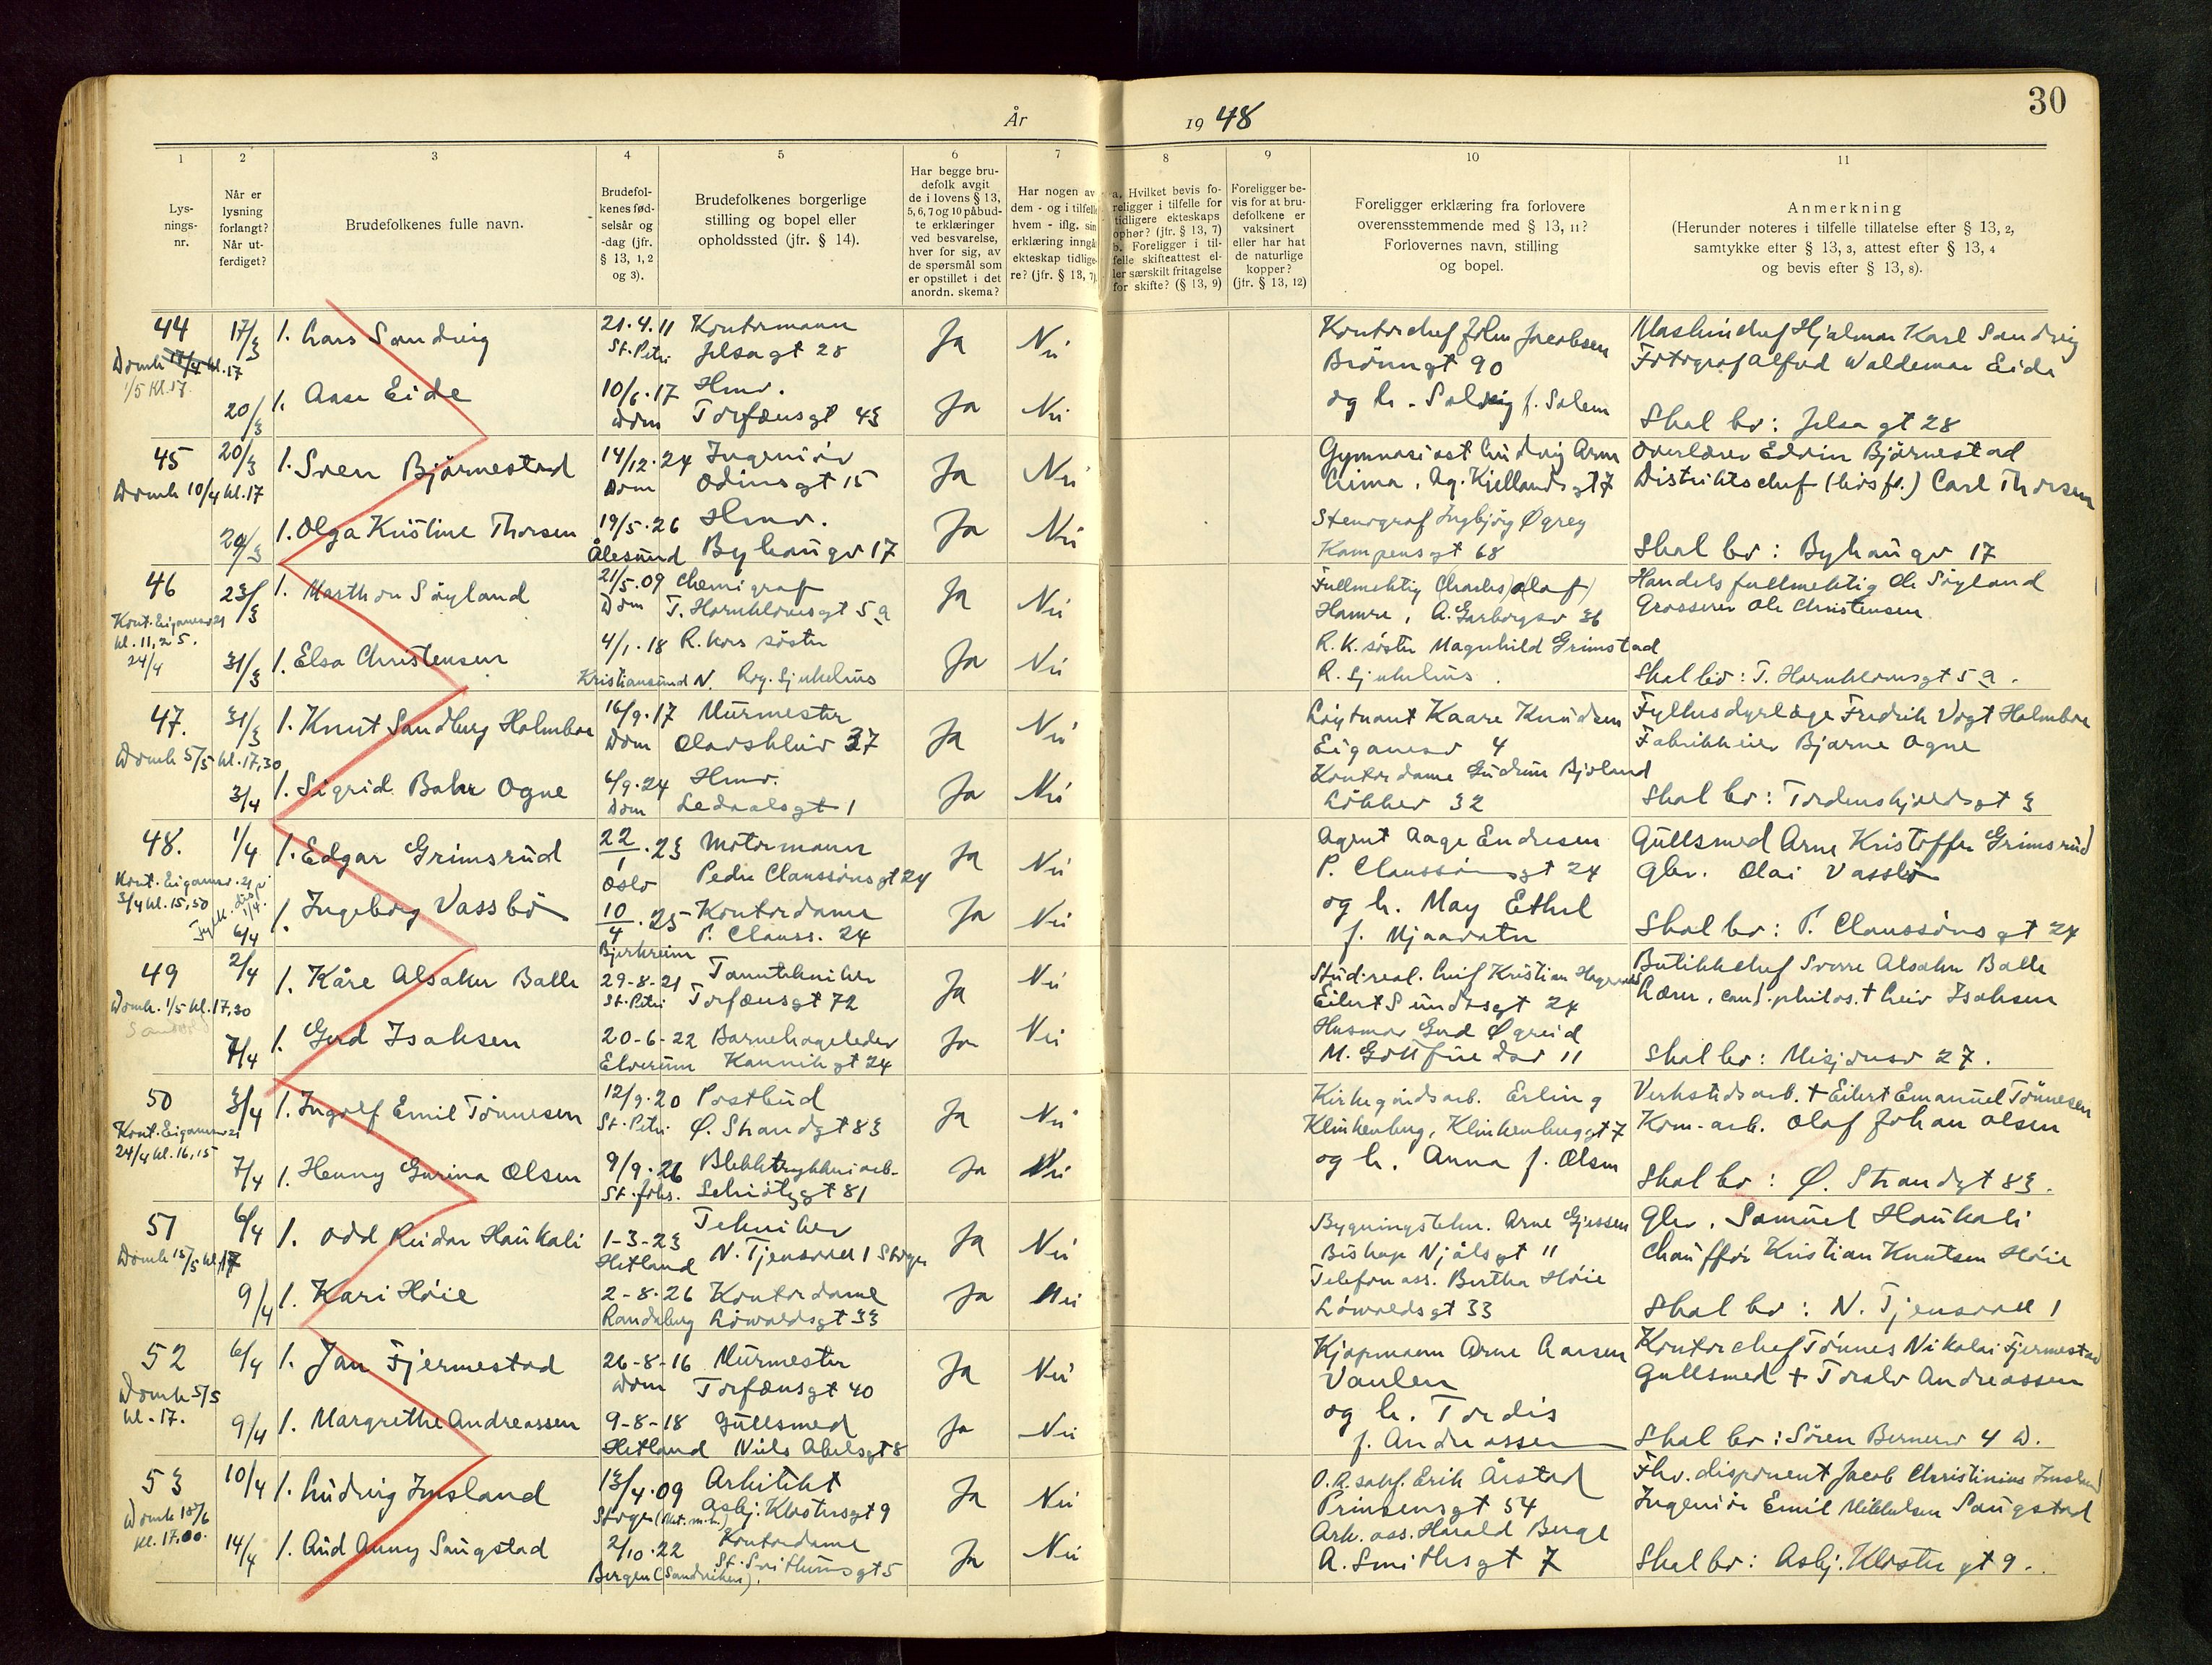 30
År 1948
1
2
3
4
5
6
7
8
9
10
11
Lys-
nings-
nr.
Når er
lysning
forlangt?
Når ut-
ferdiget?
Brudefolkenes fulle navn.
Brudefol-
kenes fød-
selsår og
-dag (jfr.
§ 13, 1, 2
og 3).
Brudefolkenes borgerlige
stilling og bopel eller
opholdssted (jfr. § 14).
Har begge bru-
defolk avgit
de i lovens § 13,
5, 6, 7 og 10 påbud-
te erklæringer
ved besvarelse,
hver for sig, av
de spørsmål som
er opstillet i det
anordn. skema?
Har nogen av
dem - og i tilfelle
hvem - iflg. sin
erklæring inngå
ekteskap tidlige-
re? (jfr. § 13, 7)
a. Hvilket bevis fo-
religger i tilfelle for
tidligere ekteskaps
ophør? (jfr. § 13, 7)
b. Foreligger i til-
felle skifteattest el-
ler særskilt fritagelse
for skifte? (§ 13, 9)
Foreligger be-
vis for at bru-
defolkene er
vaksinert
eller har hat
de naturlige
kopper?
(jfr. § 13, 12)
Foreligger erklæring fra forlovere
overensstemmende med § 13, 11?
Forlovernes navn, stilling
og bopel.
Anmerkning
(Herunder noteres i tilfelle tillatelse efter § 13, 2,
samtykke efter § 13, 3, attest efter § 13, 4
og bevis efter § 13, 8).
44 17/3 1. Lars Sandvig 21.4.11 Kontormann Ja Nei Kontorchef John Jacobsen Maskinchef Hjalmar Karl Sandvig
Domk kl. 17 St. Petri Jelsagt 28 Brönngt 90 Fotograf Alfred Waldemar Eide
1/5 kl. 17.
20/3 1. Aase Eide 10/6.17 Hmv. Ja Nei og h. Solveig f. Solem
Dom Torfæusgt 43 Skal bo: Jelsagt 28
45 20/3 1. Sven Björnestad 14/12.24 Ingeniör Ja Nei Gymnasiast Ludvig Arne Overlærer Edvin Björnestad
Domk 10/4 kl. 17 Dom Odinsgt 15 Lima, Ag. Kjellandsgt 7 Distriktschef Carl Thorsen
1. Olga Kristine Thorsen 19/5.26 Hmv. Ja Nei Stenograf Ingbjörg Øgrey
Ålesund Byhaugv 17 Kampensgt 68 Skal bo: Byhaugv 17
46 23/3 1. Marthon Söyland 21/5.09 Chemigraf Ja Nei Fullmektig Charles Olaf Handelsfullmektig Ole Söyland
Kont. Eiganesv 21 Dom T. Hornklovesgt 5a Hamre, A. Garborgsv 36 Grosserer Ole Christensen
kl. 11,25.
24/4 31/3 1. Elsa Christensen 4/1.18 R. kors söster Ja Nei R.K. söster Magnhild Grimstad
Kristiansund N. Rog. Sjukehus R. Sjukehus. Skal bo: T. Hornklovesgt 5a.
47. 31/3 1. Knut Sandberg Holmboe 16/9.17 Murmester Ja Nei Löytnant Kaare Knudsen Fylkesdyrlæge Fredrik Vogt Holmboe
Domk 5/5 kl. 17,30 Dom Olavskleiv 37 Eiganesv 4 Fabrikkeier Bjarne Ogne
3/4 1. Sigrid Bahr Ogne 6/9.24 Hmv. Ja Nei Kontordame Gudrun Bjoland
Dom Ledaalsgt 1 Lökkev 32 Skal bo: Tordenskjoldsgt 3
48. 1/4 1. Edgar Grimsrud 22/1.23 Motormann Ja Nei Agent Aage Endresen Gullsmed Arne Kristoffer Grimsrud
Kont. Eiganesv. 21 Oslo Peder Claussönsgt 24 P. Claussönsgt 24 Gbr. Olai Vassbö
3/4 kl. 15,50
6/4 1. Ingeborg Vassbö 10/4.25 Kontordame Ja Nei og h. May Ethel
Bjerkreim P. Clauss. 24 f. Mjaavatn Skal bo: P. Claussönsgt 24
49 2/4 1. Kåre Alsaker Balle 29-8-21 Tanntekniker Ja Nei Stud. real. Leif Kristian Butikkchef Sverre Alsaker Balle
Domk. 1/5 kl. 17,30 St. Petri Torfæusgt 72 Eilert Sundtsgt 24 Lærer, cand. philos. † Leiv Isaksen
7/4 1. Gerd Isaksen 20-6-22 Barnehageleder Ja Nei Husmor Gerd Øgreid
Elverum Kannikgt 24 M. Gottfriedsv 11 Skal bo: Misjonsv 27.
50 3/4 1. Ingolf Emil Tönnesen 12/9.20 Postbud Ja Nei Kirkegårdsarb. Erling Verkstedsarb. † Eilert Emanuel Tönnesen
Kont. Eiganesv 21 St. Petri Ø. Strandgt 83 Klinkenberg, Klinkenberggt 7 Kom-arb. Olaf Johan Olsen
24/4 kl. 16,15
7/4 1. Henny Gurina Olsen 9/9.26 Blikktrykkeriarb. Ja Nei og h. Anna f. Olsen
St. Johs. Schiötzgt 81 Skal bo: Ø. Strandgt 83.
51 6/4 1. Odd Reidar Haukali 1-3-23 Tekniker Ja Nei Bygningstekn. Arne Gjessen Gbr. Samuel Haukali
Domk 15/5 kl. 17 Hetland N. Tjensvoll 1 Bishop Njålsgt 11 Chaufför Kristian Knutsen Höie
9/4 1. Kari Höie 2-8-26 Kontordame Ja Nei Telefonass. Bertha Höie
Randaberg Löwoldsgt 33 Löwoldsgt 33 Skal bo: N. Tjensvoll 1
52 6/4 1. Jan Fjermestad 26-8-16 Murmester Ja Nei Kjøpmann Arne Aarsen Kontorchef Tönnes Nikolai Fjermestad
Domk 5/5 Dom Torfæusgt 40 Vaulen Gullsmed † Toralv Andreassen
kl. 17.
9/4 1. Margrethe Andreassen 9-8-18 Gullsmed Ja Nei og h. Tordis
Hetland Niels Abelsgt 8 f. Andreassen Skal bo: Sören Bernerv 4 D.
53 10/4 1. Ludvig Imsland 13/4.09 Arkitekt Ja Nei O.R. sakf. Erik Årstad Fhv. disponent Jacob Christinius Imsland
Domk 18/6 Asbj. Klostersgt 9 Prinsensgt 54 Ingeniör Emil Mikkelsen Saugstad
kl. 17.00.
14/4 1. Aud Anny Saugstad 2/10.22 Kontordame Ja Nei Ark. ass. Harald Berge
Bergen (Sandviken). St. Svithunsgt 5 A. Smithsgt 7 Skal bo: Asbj. Klostergt 9.